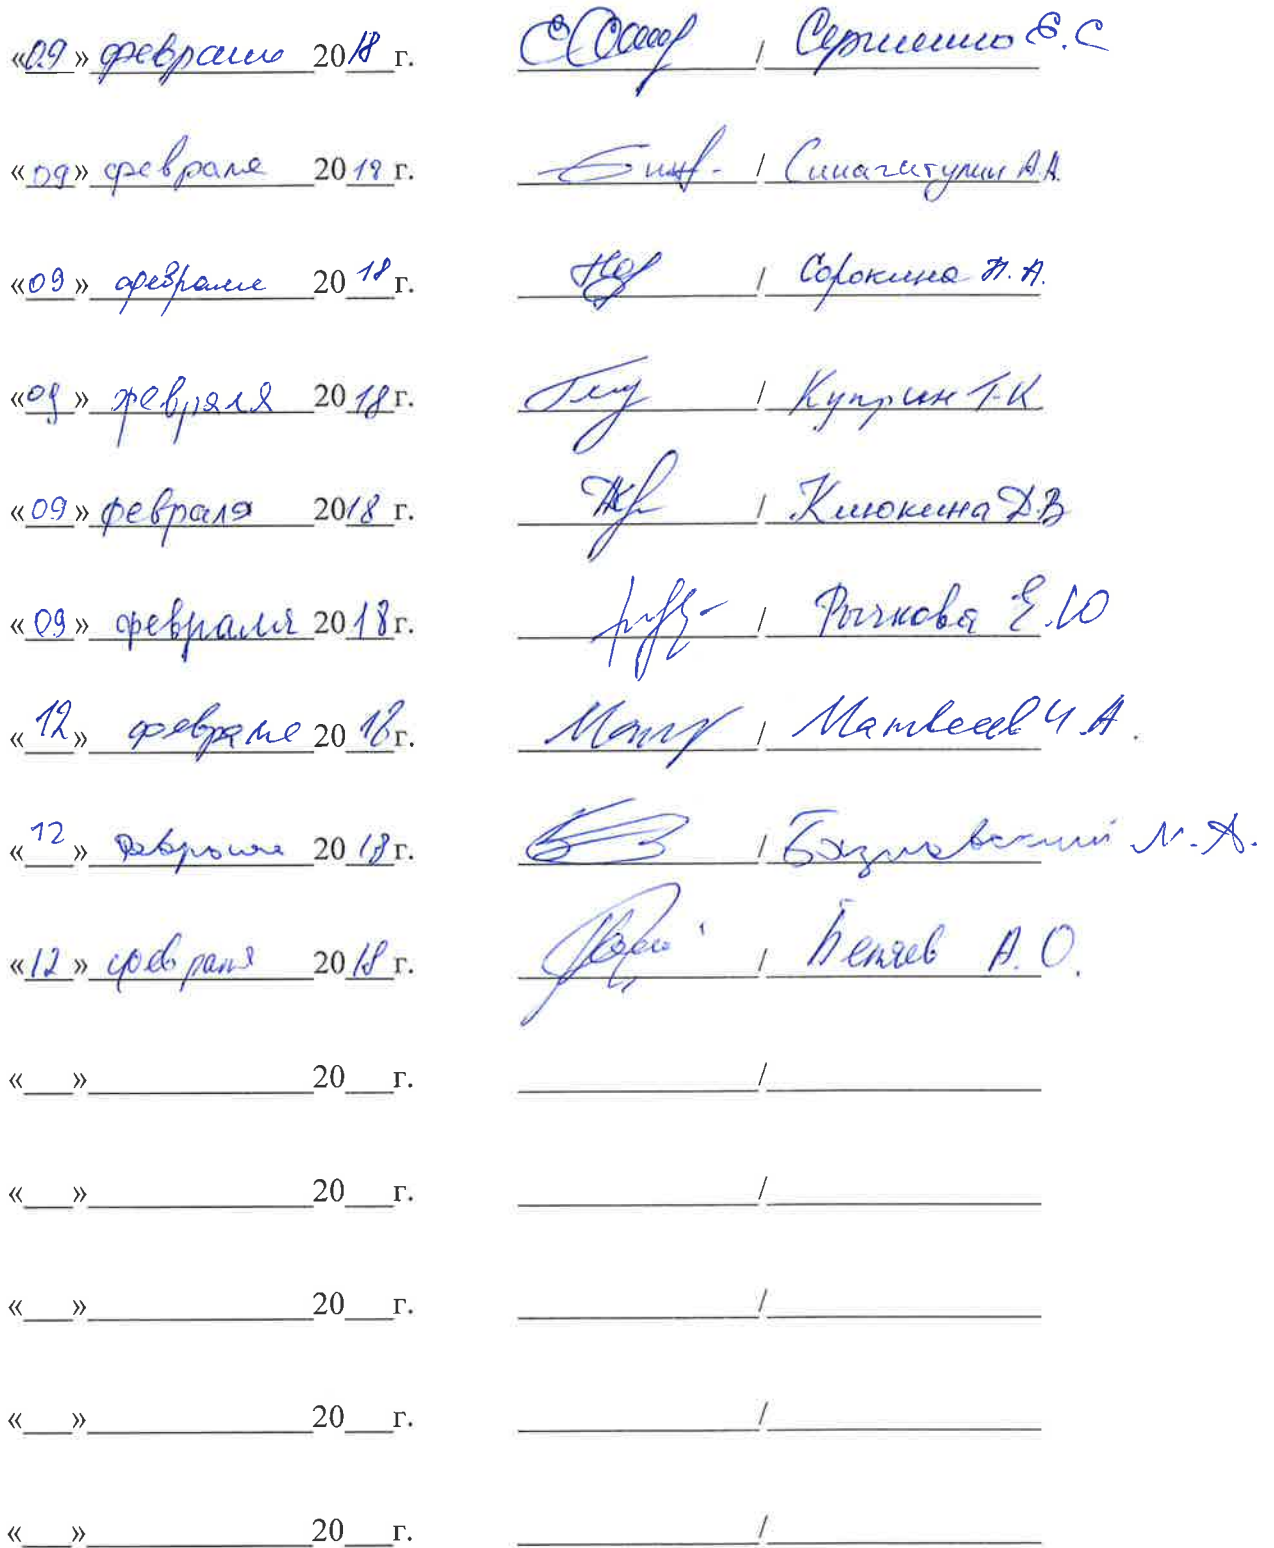 «09» февраля 2018 г. / Е.С
«09» февраля 2018 г. / Синагатулин А.А.
«09» февраля 2018 г. / Сорокина Н.А.
«09» февраля 2018 г. / Куприн Г.К
«09» февраля 2018 г. / Клюкина Д.В
«09» февраля 2018 г. / Рычкова Е.Ю
«12» февраля 2018 г. / Матвеев И.А.
«12» февраля 2018 г. /
«12» февраля 2018 г. / А.О.
«___» 20___г. /
«___» 20___г. /
«___» 20___г. /
«___» 20___г. /
«___» 20___г. /